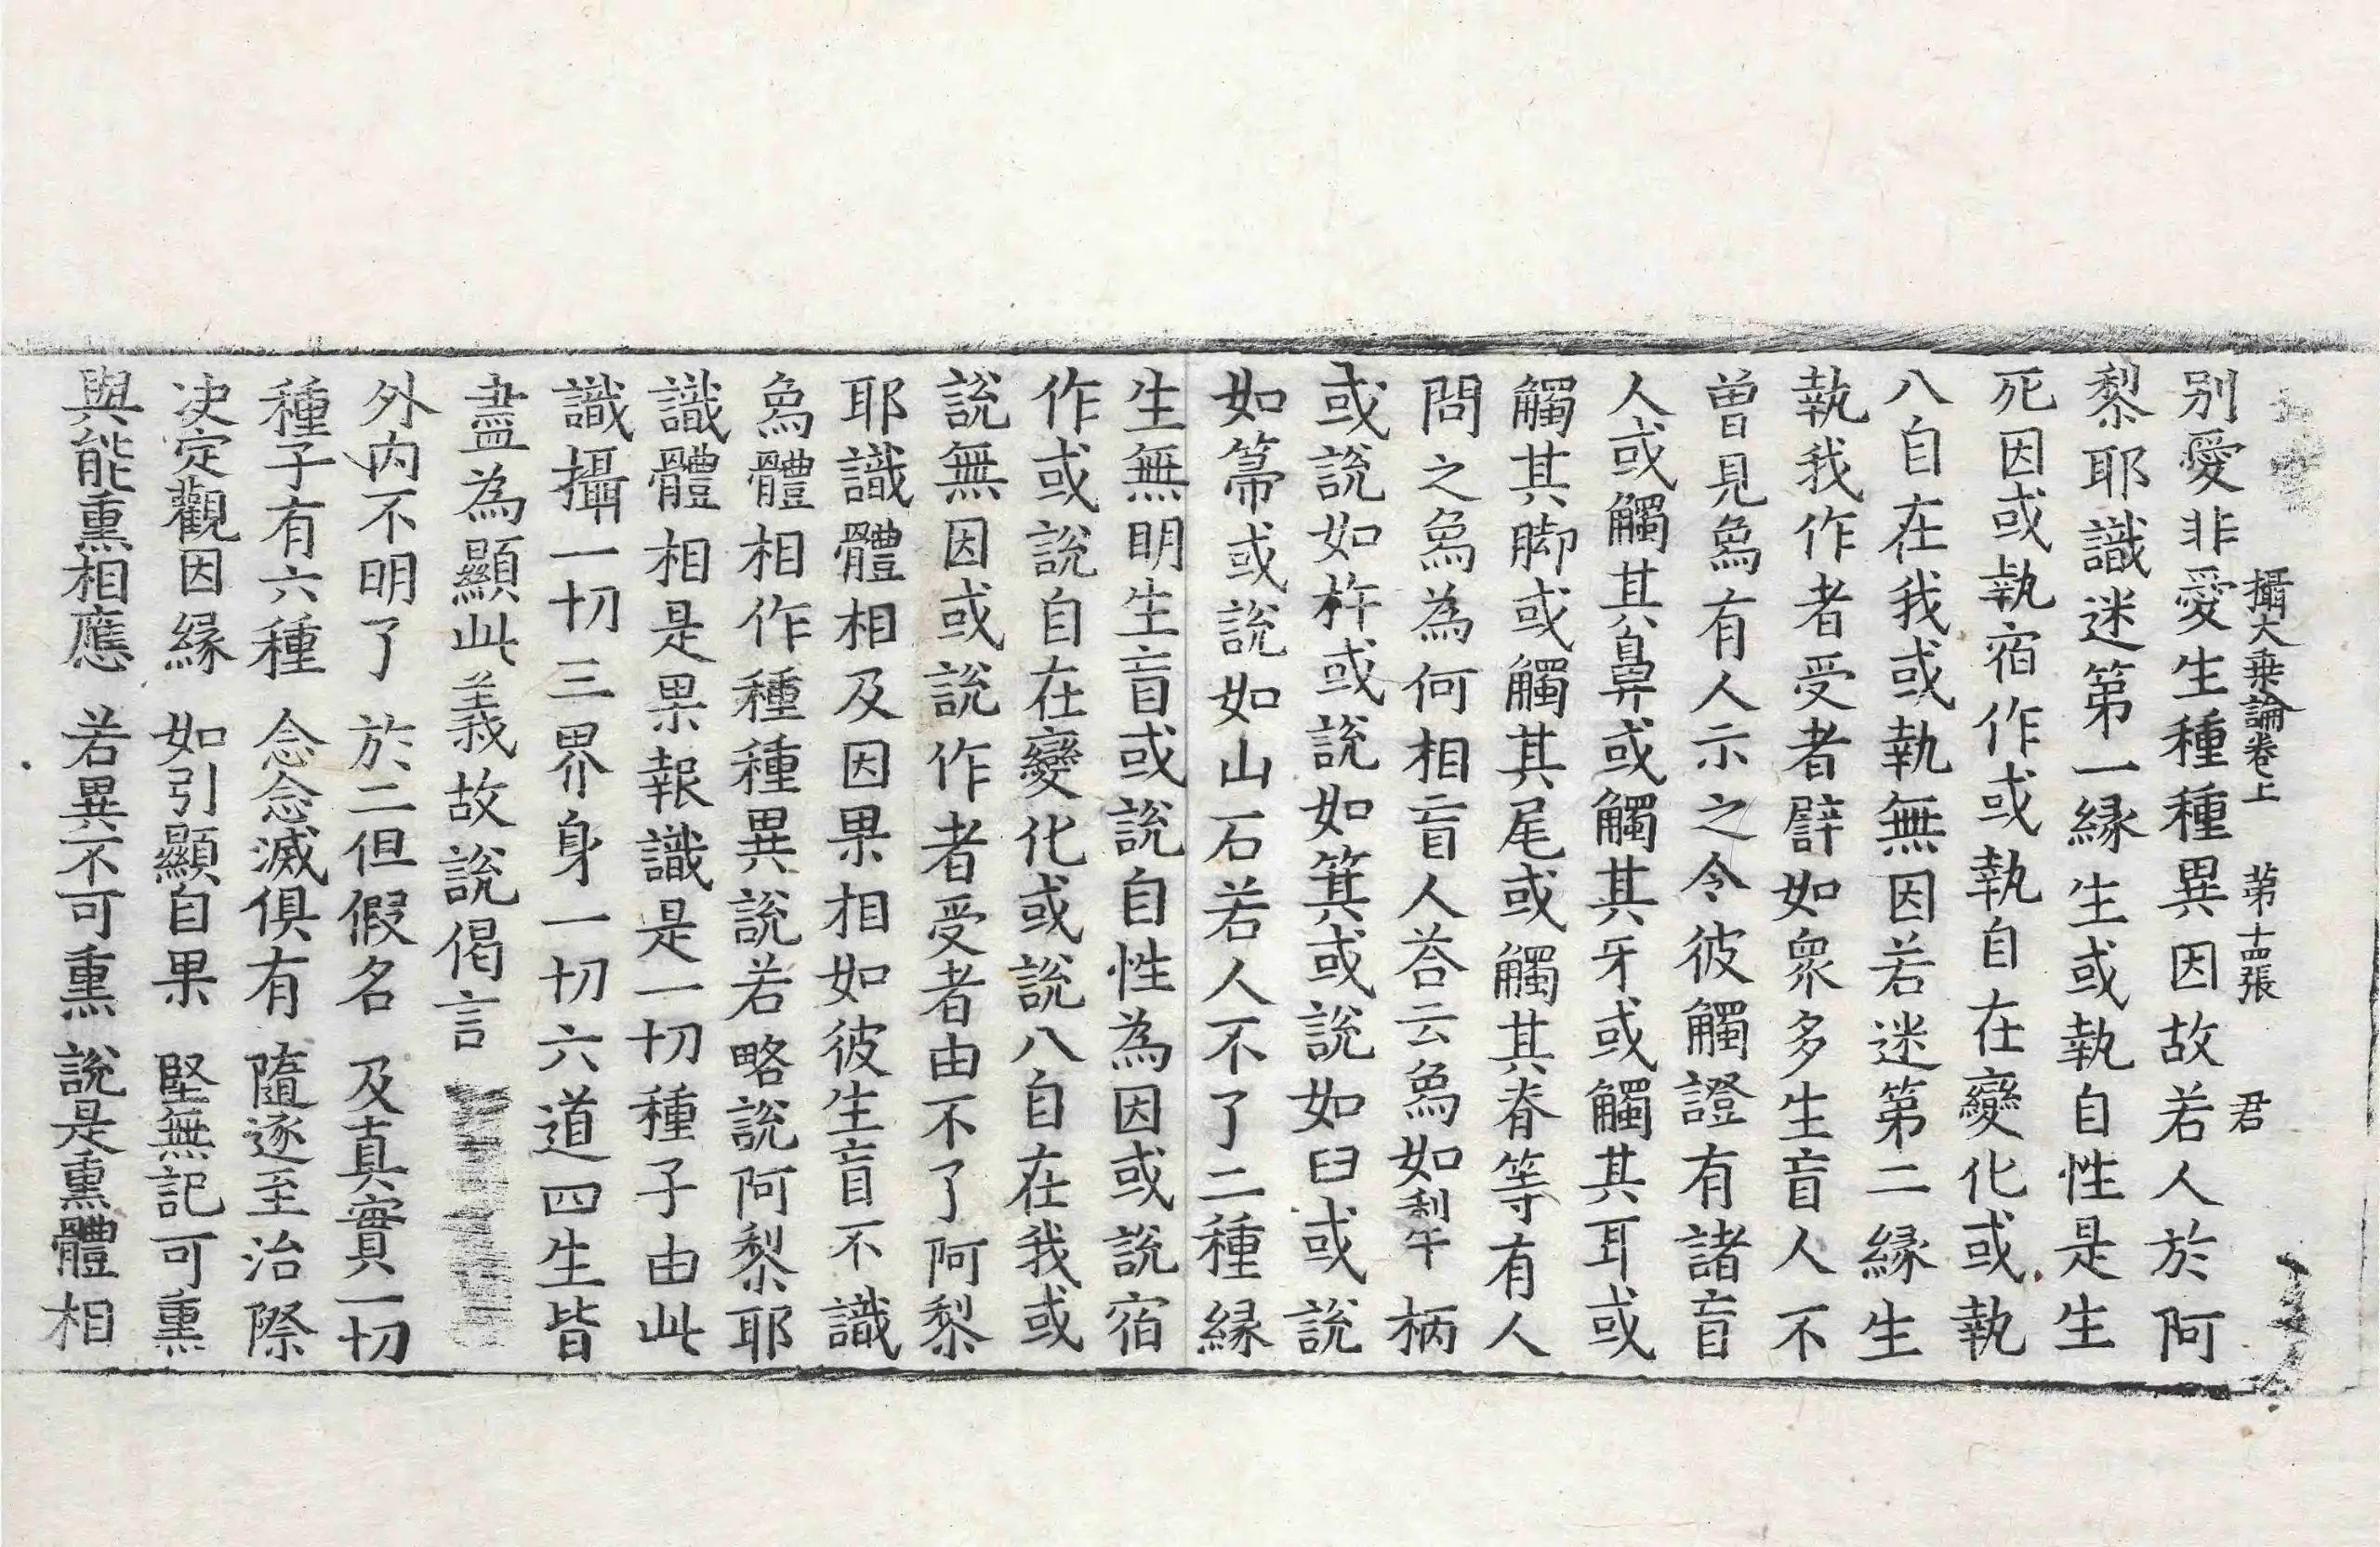 攝大乗論卷上　第十四張　君
别愛非愛生種種異因故若人於阿
黎耶識迷第一縁生或執自性是生
死因或執宿作或執自在變化或執
八自在我或執無因若迷第二縁生
執我作者受者譬如衆多生盲人不
曽見象有人示之令彼觸證有諸盲
人或觸其鼻或觸其牙或觸其耳或
觸其脚或觸其尾或觸其脊等有人
問之象為何相盲人荅云象如犁柄
或說如杵或說如箕或說如臼或說
如箒或說如山石若人不了二種縁
生無明生盲或說自性為因或說宿
作或說自在變化或說八自在我或
說無因或說作者受者由不了阿黎
耶識體相及因果相如彼生盲不識
象體相作種種異說若略說阿黎耶
識體相是果報識是一切種子由此
識攝一切三界身一切六道四生皆
盡為顯此義故說偈言
外内不明了　於二但假名　及真實一切
種子有六種　念念滅俱有　隨逐至治際
决定觀因縁　如引顯自果　堅無記可熏
與能熏相應　若異不可熏　說是熏體相